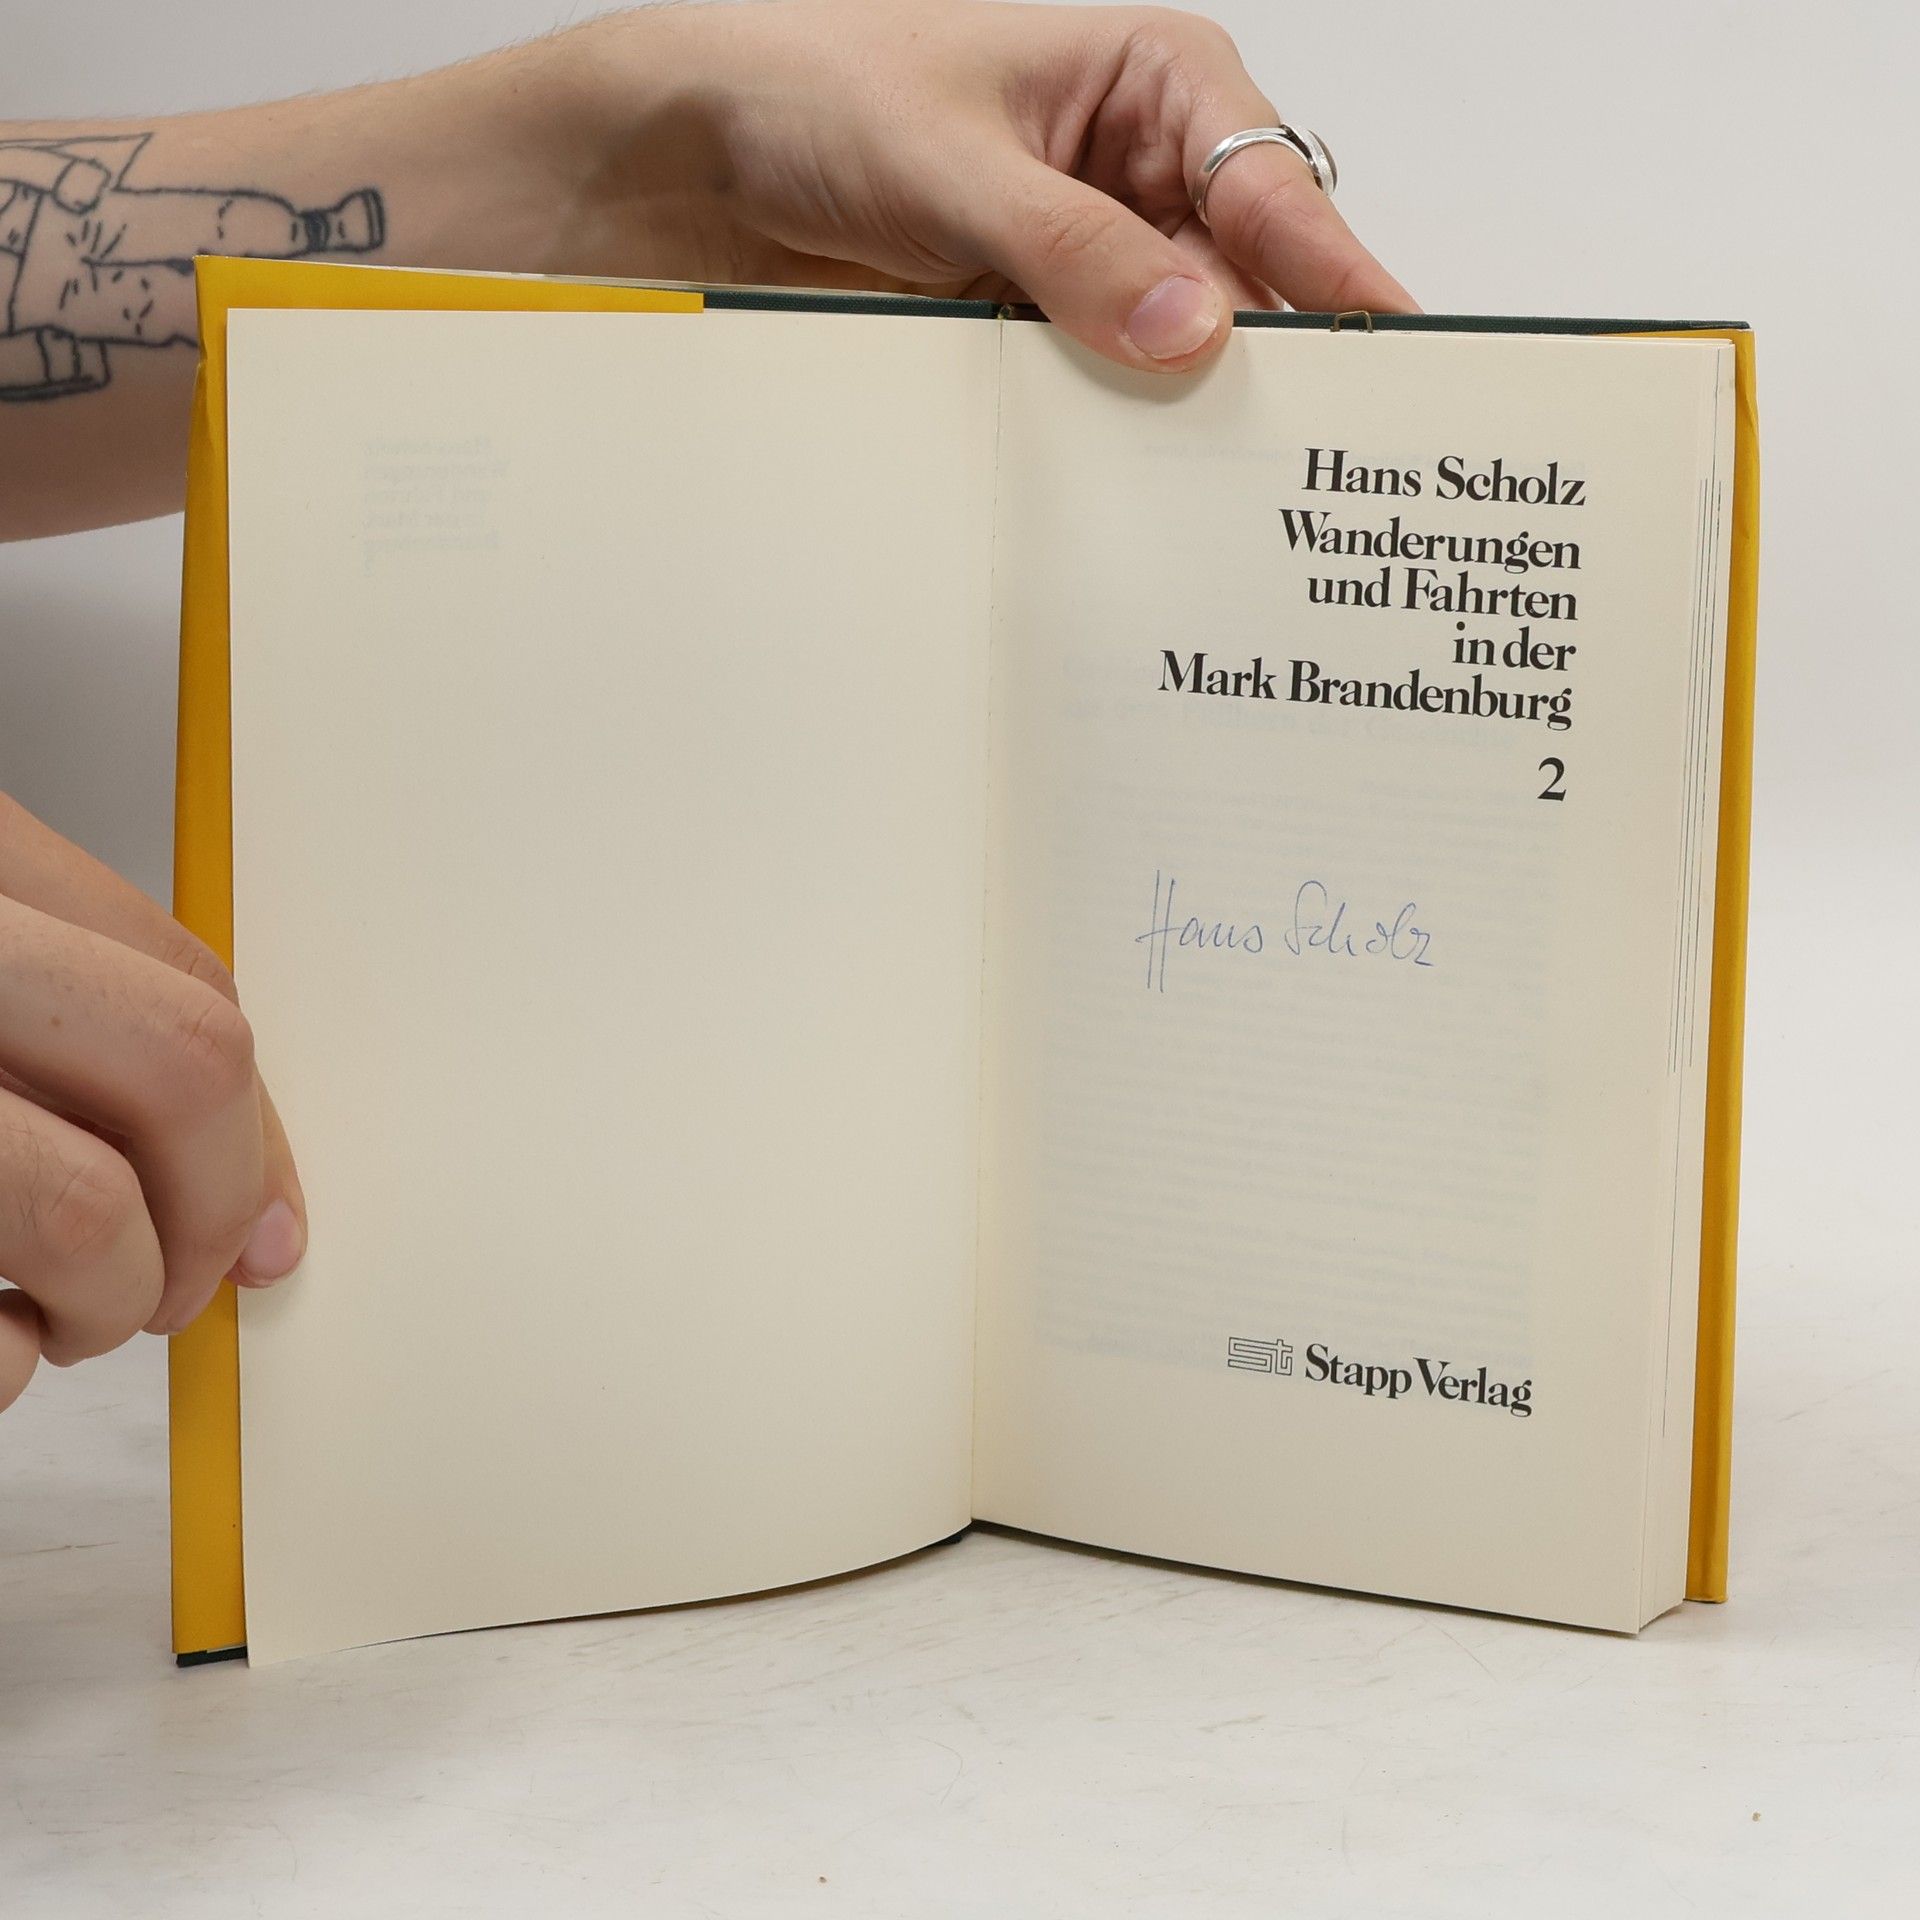 Hans Scholz
Wanderungen
und Fahrten
in der
Mark Brandenburg
2
Hans Scholz
St Stapp Verlag